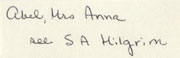 Abel, Mrs Anna
see S A Hilgrim